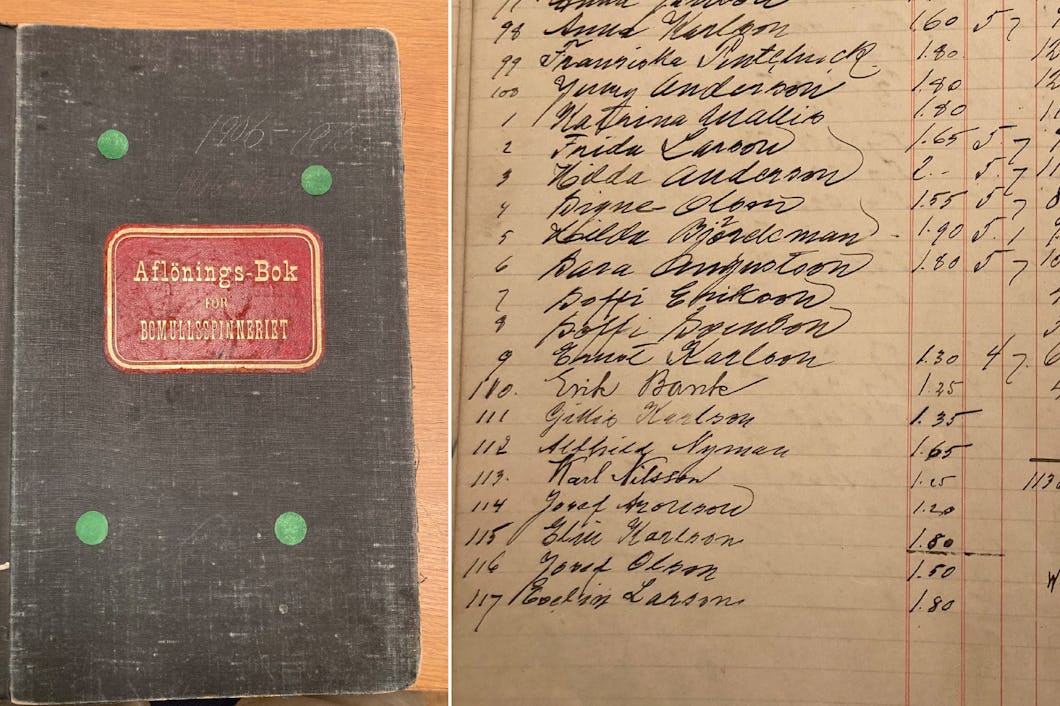 1906-19
Aflönings-Bok
FÖR
BOMULLSSPINNERIET
98 Anna Karlson 1.60 5 7
99 Fransiska 1.80
100 Jenny Anderson 1.80
1 Katrina Mallis 1.80
2 Frida Larson 1.65 5 7
3 Hilda Anderson 2.- 5. 7
4 Signe Olson 1.55 5 7
5 Hilda Björckman 1.90 5. 1
6 Sara Augustson 1.80 5 7
7 Soffi Erikson
8 Soffi Svenson
9 Ernst Karlson 1.30 4 7.
110. Erik Bank 1.25
111 Gillis Karlson 1.35
112 Nyman 1.65
113. Karl Nilsson 1.25
114 Josef Aronson 1.20
115 Karlson 1.80
116 Josef Olson 1.50
117 Evelin Larson 1.80